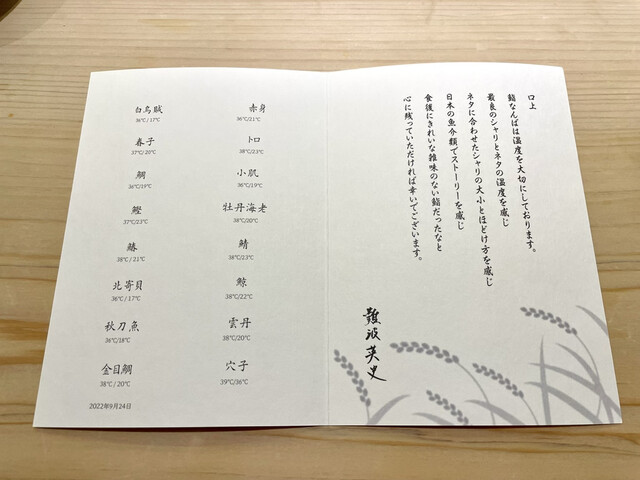 白烏賊
36℃ / 17℃
春子
37℃/ 20℃
鯛
36℃/19℃
鰹
37℃/23℃
鰆
38℃ / 21℃
北寄貝
36℃ / 17℃
秋刀魚
36℃/18℃
金目鯛
38℃ / 20℃
赤身
36℃/21℃
トロ
38℃/23℃
小肌
36℃/19℃
牡丹海老
38℃/20℃
鯖
38℃/23℃
鯨
38℃/22℃
雲丹
38℃/20℃
穴子
39℃/36℃
2022年9月24日
口上
鮨なんばは温度を大切にしております。
最良のシャリとネタの温度を感じ
ネタに合わせたシャリの大小とほどけ方を感じ
日本の魚介類でストーリーを感じ
食後にきれいな雑味のない鮨だったなと
心に残っていただければ幸いでございます。
難波英史